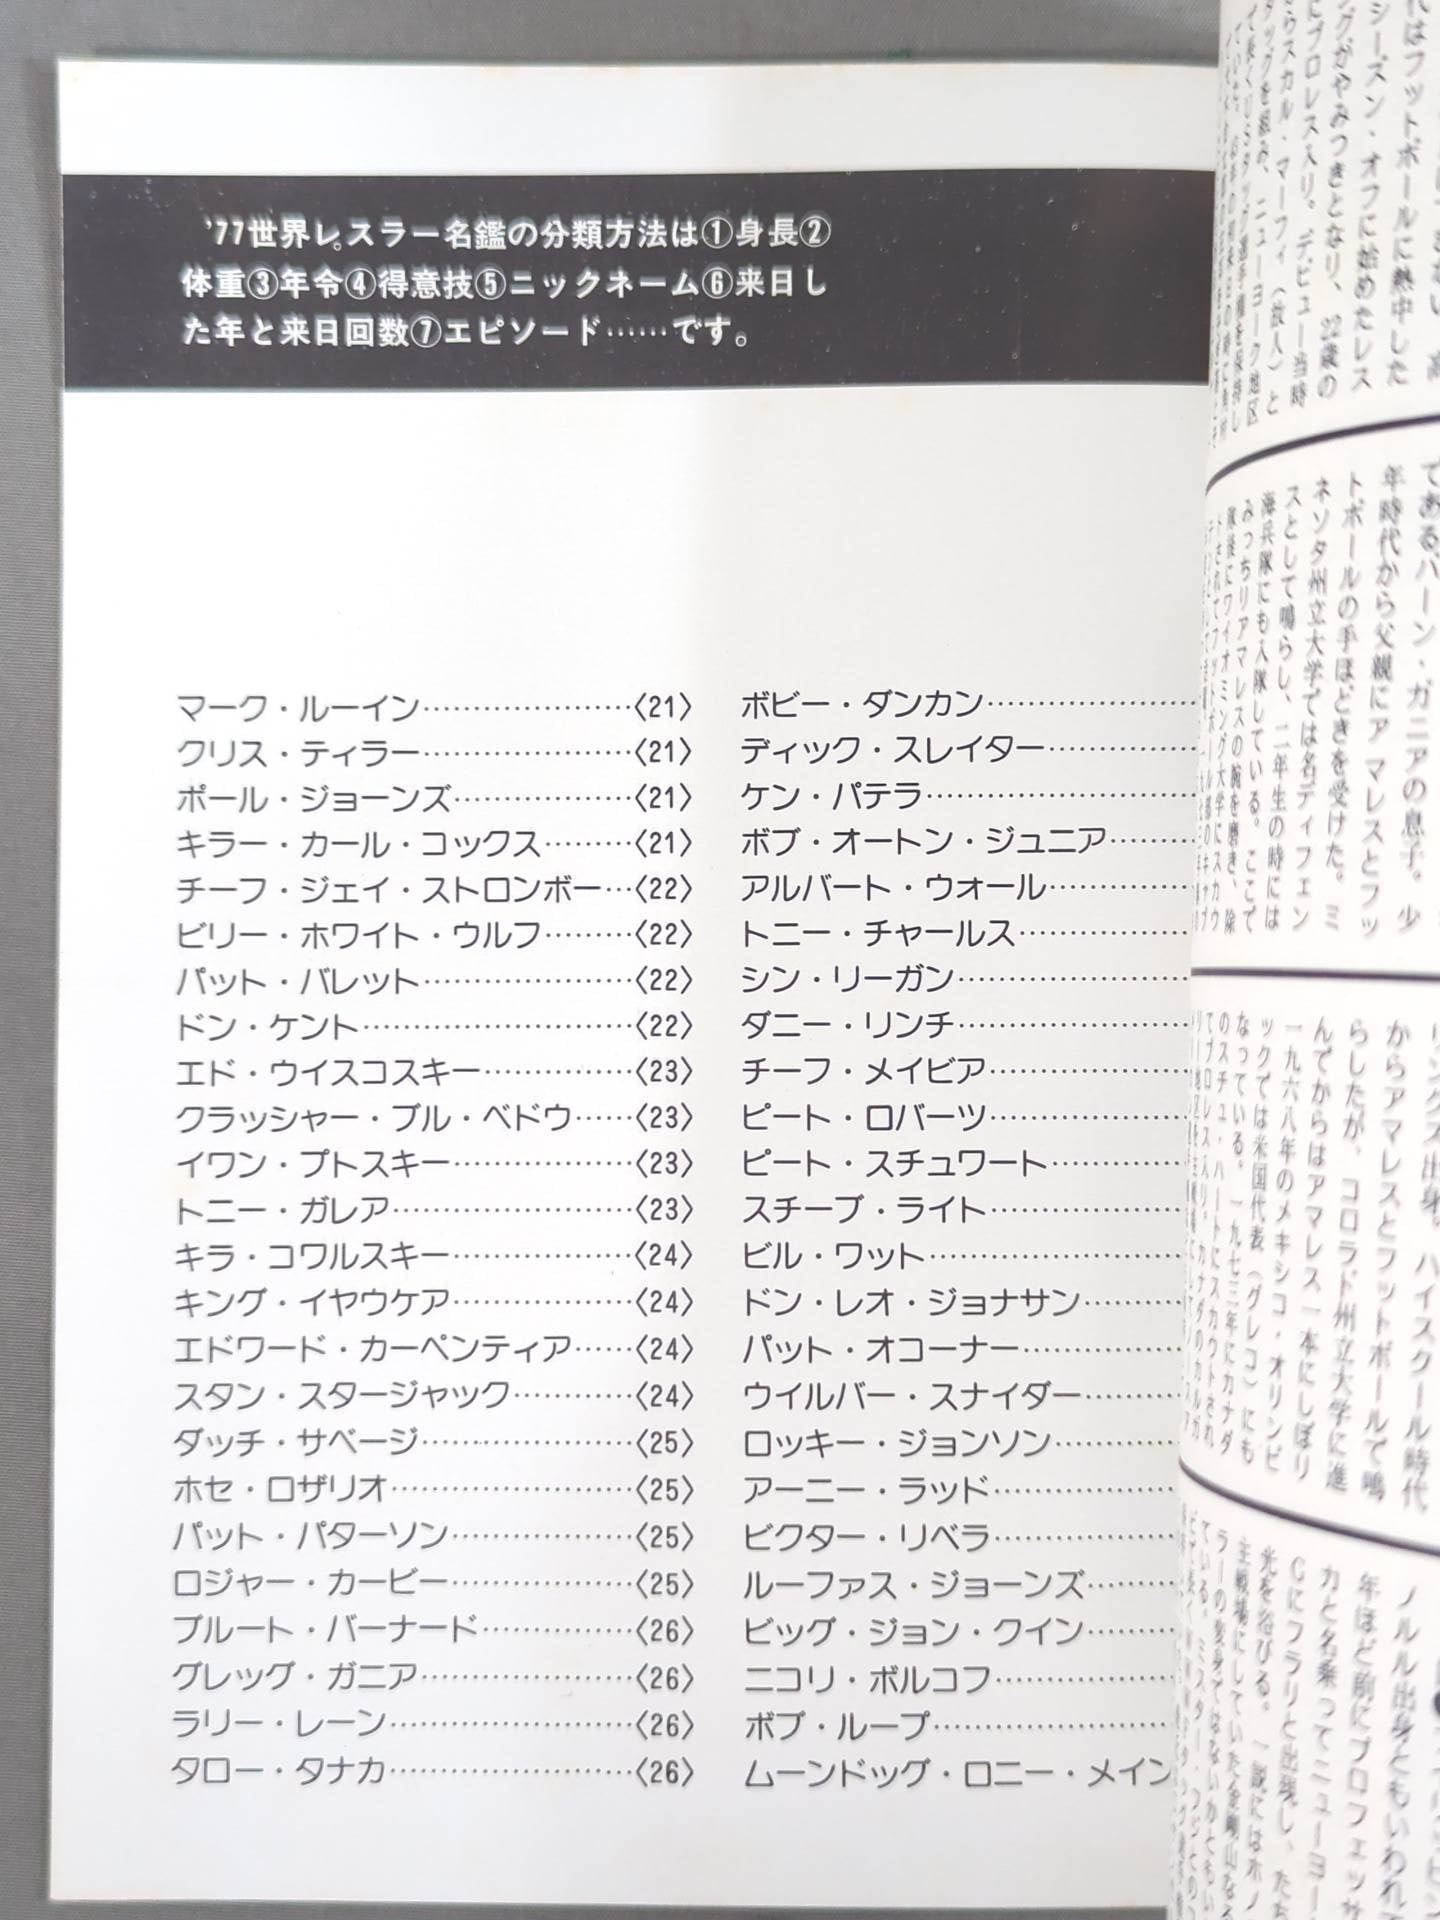 '77世界レスラー名鑑の分類方法は①身長②
体重③年令④得意技⑤ニックネーム⑥来日し
た年と来日回数⑦エピソード……です。
マーク・ルーイン…………………〈21〉
クリス・ティラー…………………〈21〉
ポール・ジョーンズ………………〈21〉
キラー・カール・コックス………〈21〉
チーフ・ジェイ・ストロンボー…〈22〉
ビリー・ホワイト・ウルフ………〈22〉
パット・バレット…………………〈22〉
ドン・ケント………………………〈22〉
エド・ウイスコスキー……………〈23〉
クラッシャー・ブル・ベドウ……〈23〉
イワン・プトスキー………………〈23〉
トニー・ガレア……………………〈23〉
キラ・コワルスキー………………〈24〉
キング・イヤウケア………………〈24〉
エドワード・カーペンティア……〈24〉
スタン・スタージャック…………〈24〉
ダッチ・サベージ…………………〈25〉
ホセ・ロザリオ……………………〈25〉
パット・パターソン………………〈25〉
ロジャー・カービー………………〈25〉
ブルート・バーナード……………〈26〉
グレッグ・ガニア…………………〈26〉
ラリー・レーン……………………〈26〉
タロー・タナカ……………………〈26〉
ボビー・ダンカン…………………
ディック・スレイター……………
ケン・パテラ………………………
ボブ・オートン・ジュニア………
アルバート・ウォール……………
トニー・チャールス………………
シン・リーガン……………………
ダニー・リンチ……………………
チーフ・メイビア…………………
ピート・ロバーツ…………………
ピート・スチュワート……………
スチーブ・ライト…………………
ビル・ワット………………………
ドン・レオ・ジョナサン…………
パット・オコーナー………………
ウイルバー・スナイダー…………
ロッキー・ジョンソン……………
アーニー・ラッド…………………
ビクター・リベラ…………………
ルーファス・ジョーンズ…………
ビッグ・ジョン・クイン…………
ニコリ・ボルコフ…………………
ボブ・ループ………………………
ムーンドッグ・ロニー・メイン
代はフットボールに熱中した
シーズン・オフに始めたレス
ングがやみつきとなり、22歳の
にプロレス入り。デビュー当時
らスカル・マーフィ（故人）と
タッグを組み、ニューヨーク地区
であるバーン・ガニアの息子。少
年時代から父親にアマレスとフッ
トボールの手ほどきを受けた。ミ
ネソタ州立大学では名ディフェン
スとして鳴らし、二年生の時には
海兵隊にも入隊している。ここで
みっちりアマレスの腕を磨き、除
隊後にワイオミング大学にスカウ
リングス出身。ハイスクール時代
からアマレスとフットボールで鳴
らしたが、コロラド州立大学に進
んでからはアマレス一本にしぼり
一九六八年のメキシコ・オリンピ
ックでは米国代表（グレコ）にも
なっている。一九七三年にカナダ
のスチュ・ハートにスカウトされ
てプロレス入り。カナダのカルガ
ノルル出身ともいわれて
年ほど前にプロフェッサ
カと名乗ってニューヨー
Gにフラリと出現し、たち
光を浴びる。一説にはホノ
主戦場にしていた金剛山なる
ラーの変身ではないかともい
ている。ミスター・フジとの